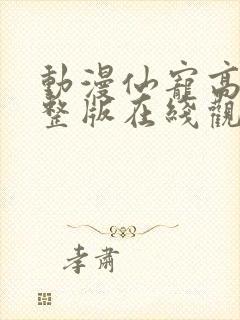 動漫仙寵高
整版在綫觀
孝肅